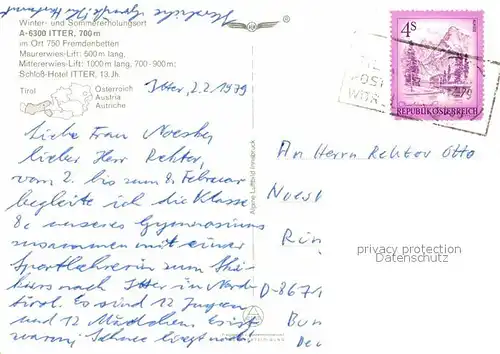 Herzliche Grüße Ihr Hermann
Winter- und Sommererholungsort
A-6300 ITTER, 700 m
im Ort 750 Fremdenbetten
Maurerwies-Lift: 500 m lang,
Mittererwies-Lift: 1000 m lang, 700-900 m;
Schloß-Hotel ITTER, 13. Jh.
Tirol
Österreich
Austria
Autriche
Itter, 2.2.1979
Liebe Frau
lieber Herr Rektor,
vom 2. bis zum 8. Februar
begleite ich die Klasse
8c unseres Gymnasiums
zusammen mit einer
Sportlehrerin zum Ski-
kurs nach Itter in Nord-
tirol. Es sind 12 Jungen
und 12 Mädchen. Es ist
warm, Schnee liegt noch!
Alpine Luftbild Innsbruck
4s
REPUBLIK ÖSTERREICH
An Herrn Rektor Otto
D-8671
privacy protection
Datenschutz